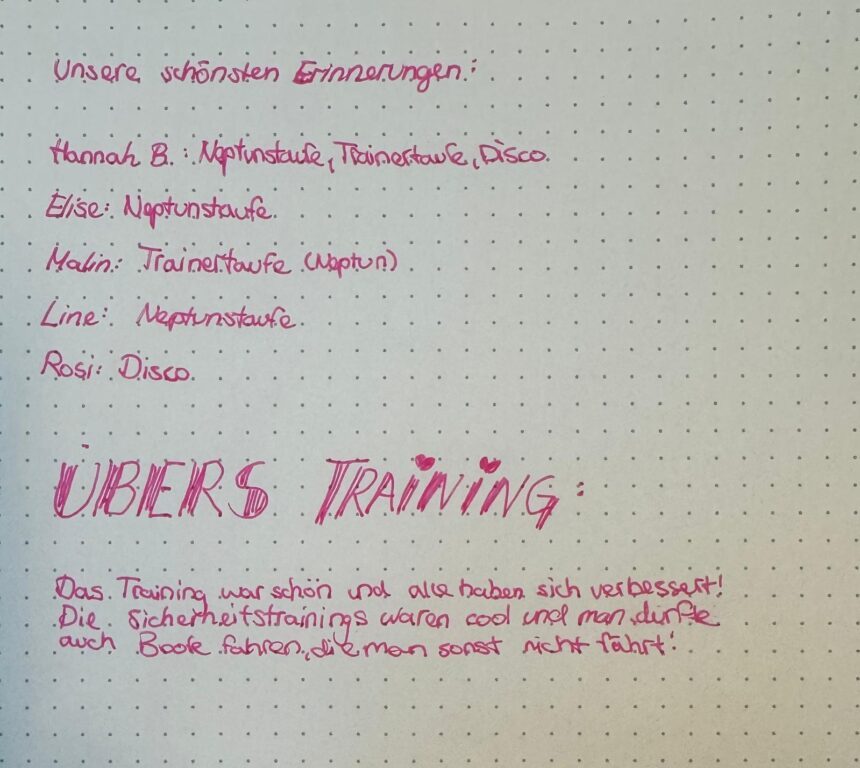 Unsere schönsten Erinnerungen:
Hannah B.: Neptunstaufe, Trainertaufe, Disco
Elise: Neptunstaufe
Malin: Trainertaufe (Neptun)
Line: Neptunstaufe
Rosi: Disco
ÜBERS TRAINING:
Das Training war schön und alle haben sich verbessert!
Die Sicherheitstrainings waren cool und man durfte
auch Boote fahren, die man sonst nicht fährt!